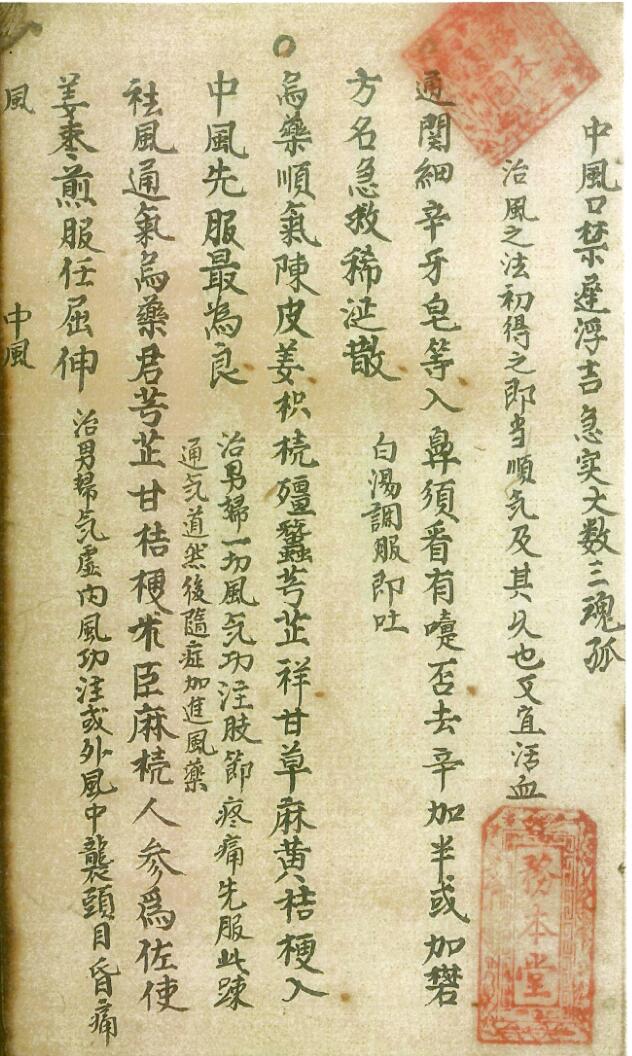 中風口禁遲浮吉急实大数三魂孤
治風之法初得之即当順气及其久也又宜活血
通関細辛牙皂等入鼻須看有嚏否去辛加半或加礬
方名急救稀涎散
白湯調服即吐
烏藥順氣陳皮姜枳梹殭蠶芎芷祥甘草麻黄桔梗入
中風先服最為良
治男婦一切風气功注肢節疼痛先服此踈
通气道然後隨症加進風藥
祛風通氣烏藥君芎芷甘桔梗朮臣麻梹人参爲佐使
姜棗煎服任屈伸
治男婦气虚内風功注或外風中襲頭目昏痛
風
中風
務本堂